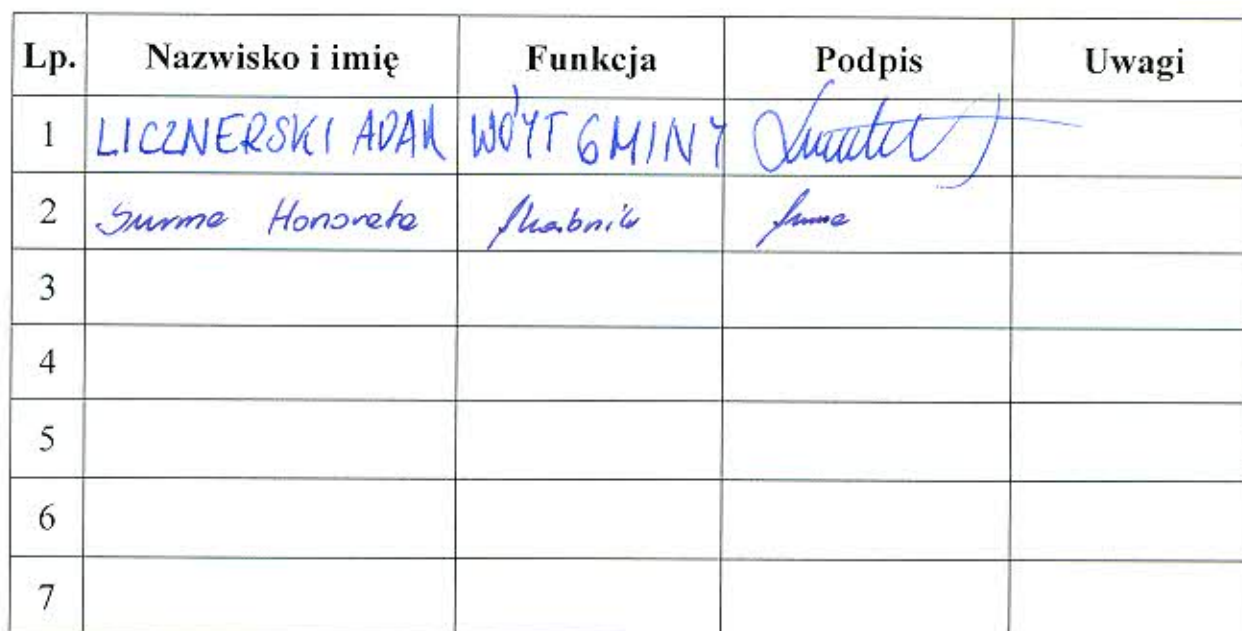 Lp. Nazwisko i imię Funkcja Podpis Uwagi
1 LICZNERSKI ADAM WÓYT GMINY
2 Surma Honorata Skarbnik
3
4
5
6
7